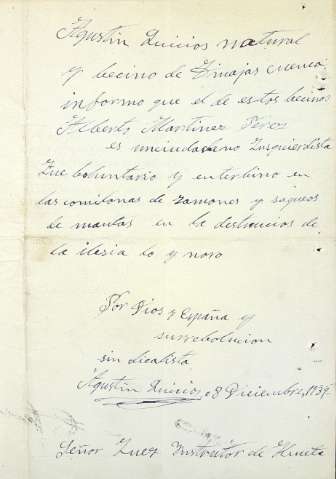 Agustin Quicios natural
y becino de Tinajas cuenca
informo que el de estos becinos
Alberto Martinez Perez
es unciudadano Izquierdista
Fue boluntario y enterbino en
las comilonas de Jamones y saqueos
de mantas en la destrucios de
la ilesia lo y novo
Por Dios y España y
su rrebolucion
sin dicalista
Agustin Quicios, 8 Diciembre, 1939
Señor Juez Instrutor de Huete